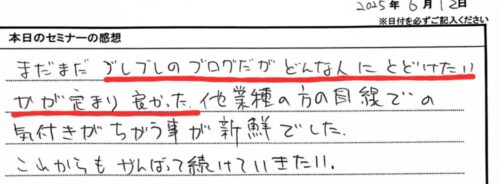 2025年6月12日
※日付を必ずご記入ください
本日のセミナーの感想
まだまだ ブレブレのブログだが どんな人に とどけたい
かが定まり 良かった. 他業種の方の目線での
気付きがちがう事が新鮮でした.
これからもがんばって続けていきたい.